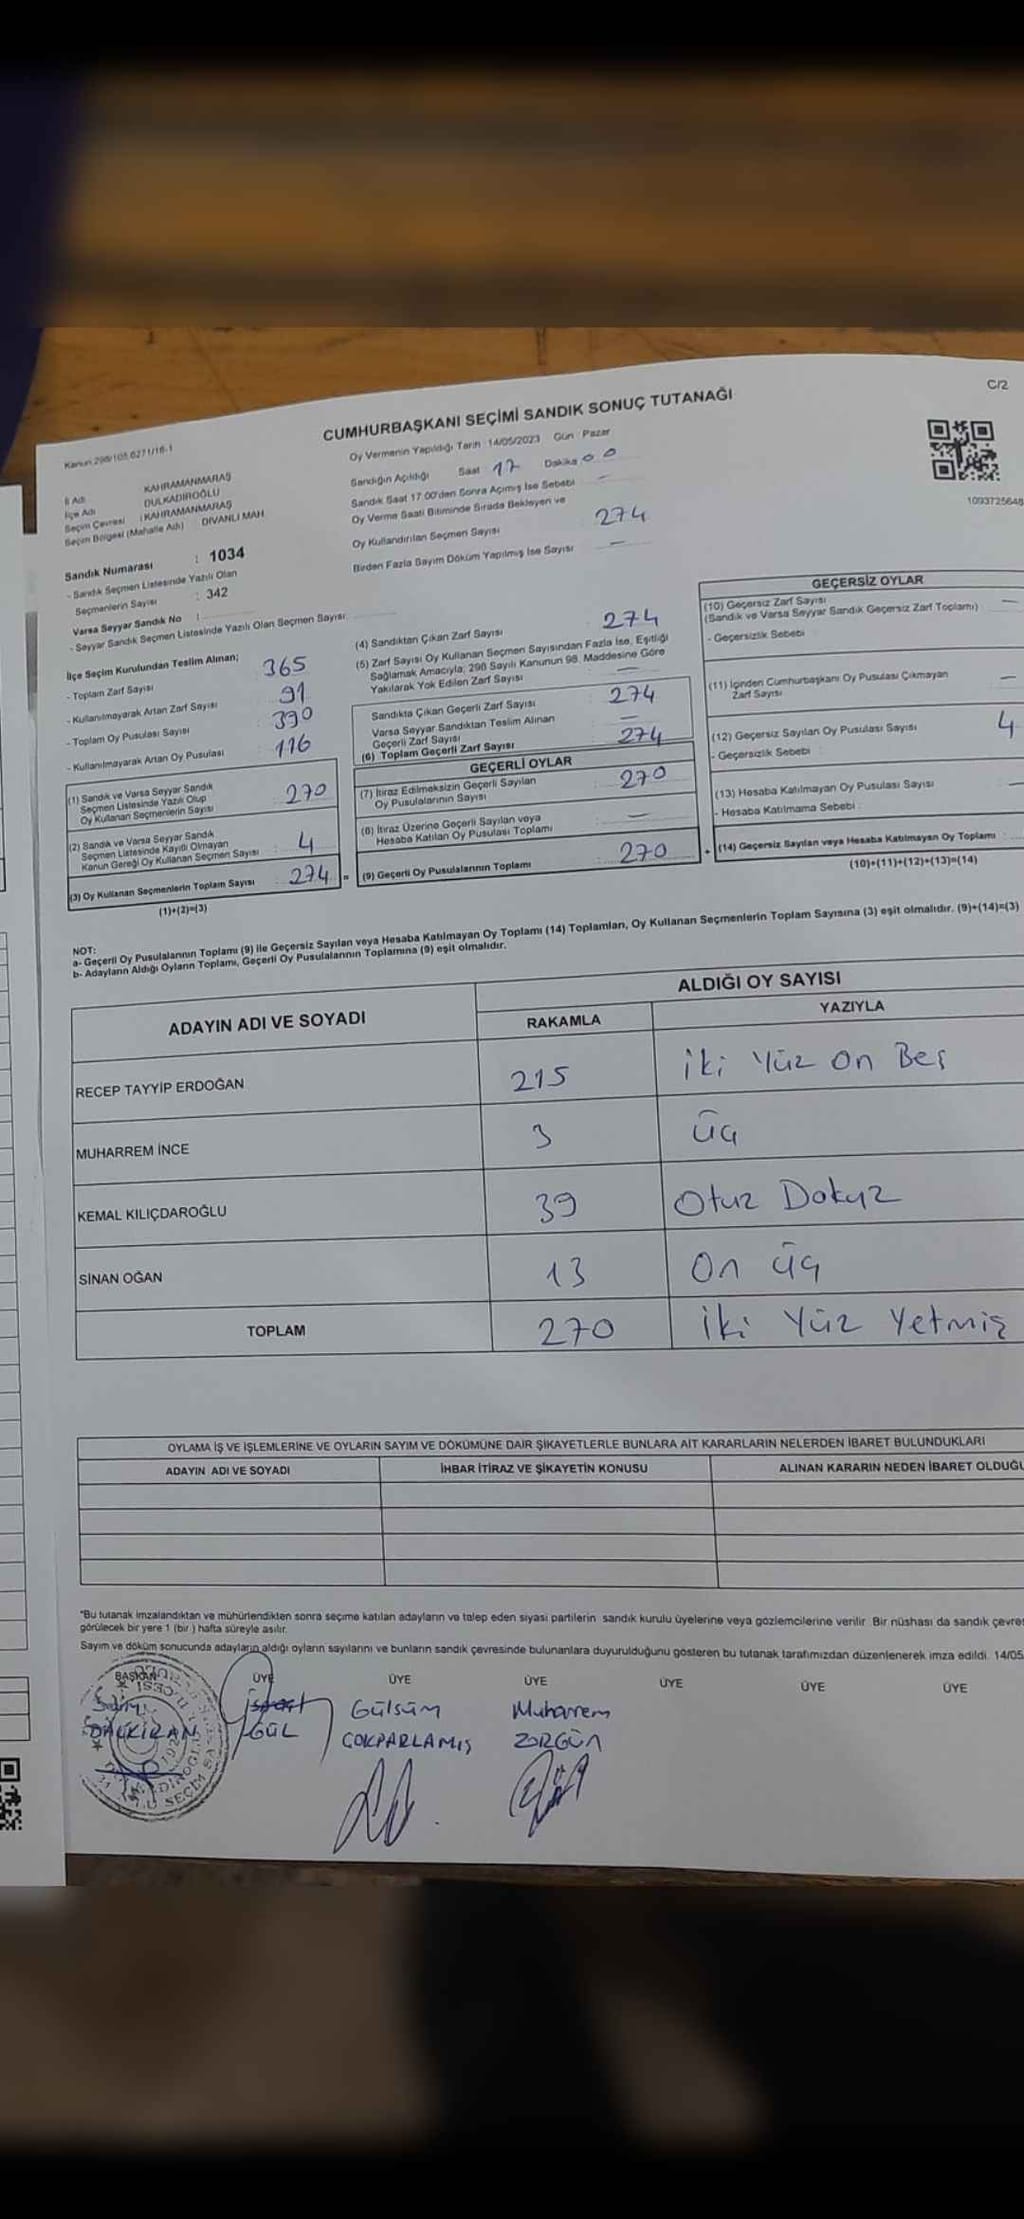 C/2
CUMHURBAŞKANI SEÇİMİ SANDIK SONUÇ TUTANAĞI
Kanun 298/105,6271/16-1
Oy Vermenin Yapıldığı Tarih 14/05/2023 Gün Pazar
Sandığın Açıldığı Saat 17 Dakika 00
Sandık Saat 17.00'den Sonra Açımış İse Sebebi —
Oy Verme Saati Bitiminde Sırada Bekleyen ve
Oy Kullandırılan Seçmen Sayısı 274
Birden Fazla Sayım Döküm Yapılmış İse Sayısı —
1093725648
İl Adı KAHRAMANMARAŞ
İlçe Adı DULKADİROĞLU
Seçim Çevresi : KAHRAMANMARAŞ
Seçim Bölgesi (Mahalle Adı) DİVANLI MAH
Sandık Numarası : 1034
- Sandık Seçmen Listesinde Yazılı Olan
Seçmenlerin Sayısı : 342
Varsa Seyyar Sandık No :
- Seyyar Sandık Seçmen Listesinde Yazılı Olan Seçmen Sayısı:
İlçe Seçim Kurulundan Teslim Alınan;
- Toplam Zarf Sayısı 365
- Kullanılmayarak Artan Zarf Sayısı 91
- Toplam Oy Pusulası Sayısı 390
- Kullanılmayarak Artan Oy Pusulası 116
(1) Sandık ve Varsa Seyyar Sandık
Seçmen Listesinde Yazılı Olup
Oy Kullanan Seçmenlerin Sayısı 270
(2) Sandık ve Varsa Seyyar Sandık
Seçmen Listesinde Kayıtlı Olmayan
Kanun Gereği Oy Kullanan Seçmen Sayısı 4
(3) Oy Kullanan Seçmenlerin Toplam Sayısı : 274 =
(1)+(2)=(3)
(4) Sandıktan Çıkan Zarf Sayısı 274
(5) Zarf Sayısı Oy Kullanan Seçmen Sayısından Fazla İse, Eşitliği
Sağlamak Amacıyla, 298 Sayılı Kanunun 98. Maddesine Göre
Yakılarak Yok Edilen Zarf Sayısı —
Sandıkta Çıkan Geçerli Zarf Sayısı 274
Varsa Seyyar Sandıktan Teslim Alınan
Geçerli Zarf Sayısı —
(6) Toplam Geçerli Zarf Sayısı 274
GEÇERLİ OYLAR
(7) İtiraz Edilmeksizin Geçerli Sayılan
Oy Pusulalarının Sayısı : 270
(8) İtiraz Üzerine Geçerli Sayılan veya
Hesaba Katılan Oy Pusulası Toplamı : —
(9) Geçerli Oy Pusulalarının Toplamı : 270 +
GEÇERSİZ OYLAR
(10) Geçersiz Zarf Sayısı —
(Sandık ve Varsa Seyyar Sandık Geçersiz Zarf Toplamı)
- Geçersizlik Sebebi
(11) İçinden Cumhurbaşkanı Oy Pusulası Çıkmayan
Zarf Sayısı —
(12) Geçersiz Sayılan Oy Pusulası Sayısı 4
- Geçersizlik Sebebi :
(13) Hesaba Katılmayan Oy Pusulası Sayısı —
- Hesaba Katılmama Sebebi :
(14) Geçersiz Sayılan veya Hesaba Katılmayan Oy Toplamı :
(10)+(11)+(12)+(13)=(14)
NOT:
a- Geçerli Oy Pusulalarının Toplamı (9) ile Geçersiz Sayılan veya Hesaba Katılmayan Oy Toplamı (14) Toplamları, Oy Kullanan Seçmenlerin Toplam Sayısına (3) eşit olmalıdır. (9)+(14)=(3)
b- Adayların Aldığı Oyların Toplamı, Geçerli Oy Pusulalarının Toplamına (9) eşit olmalıdır.
ADAYIN ADI VE SOYADI
ALDIĞI OY SAYISI
RAKAMLA YAZIYLA
RECEP TAYYİP ERDOĞAN 215 iki Yüz On Beş
MUHARREM İNCE 3 üç
KEMAL KILIÇDAROĞLU 39 Otuz Dokuz
SİNAN OĞAN 13 On üç
TOPLAM 270 iki Yüz Yetmiş
OYLAMA İŞ VE İŞLEMLERİNE VE OYLARIN SAYIM VE DÖKÜMÜNE DAİR ŞİKAYETLERLE BUNLARA AİT KARARLARIN NELERDEN İBARET BULUNDUKLARI
ADAYIN ADI VE SOYADI İHBAR İTİRAZ VE ŞİKAYETİN KONUSU ALINAN KARARIN NEDEN İBARET OLDUĞU
*Bu tutanak imzalandıktan ve mühürlendikten sonra seçime katılan adayların ve talep eden siyasi partilerin sandık kurulu üyelerine veya gözlemcilerine verilir. Bir nüshası da sandık
görülecek bir yere 1 (bir ) hafta süreyle asılır.
Sayım ve döküm sonucunda adayların aldığı oyların sayılarını ve bunların sandık çevresinde bulunanlara duyurulduğunu gösteren bu tutanak tarafımızdan düzenlenerek imza edildi. 14/05
BAŞKAN ÜYE ÜYE ÜYE ÜYE ÜYE ÜYE
Gülsüm Muharrem
GÜL GÖKPARLAMIŞ ZORGÜN